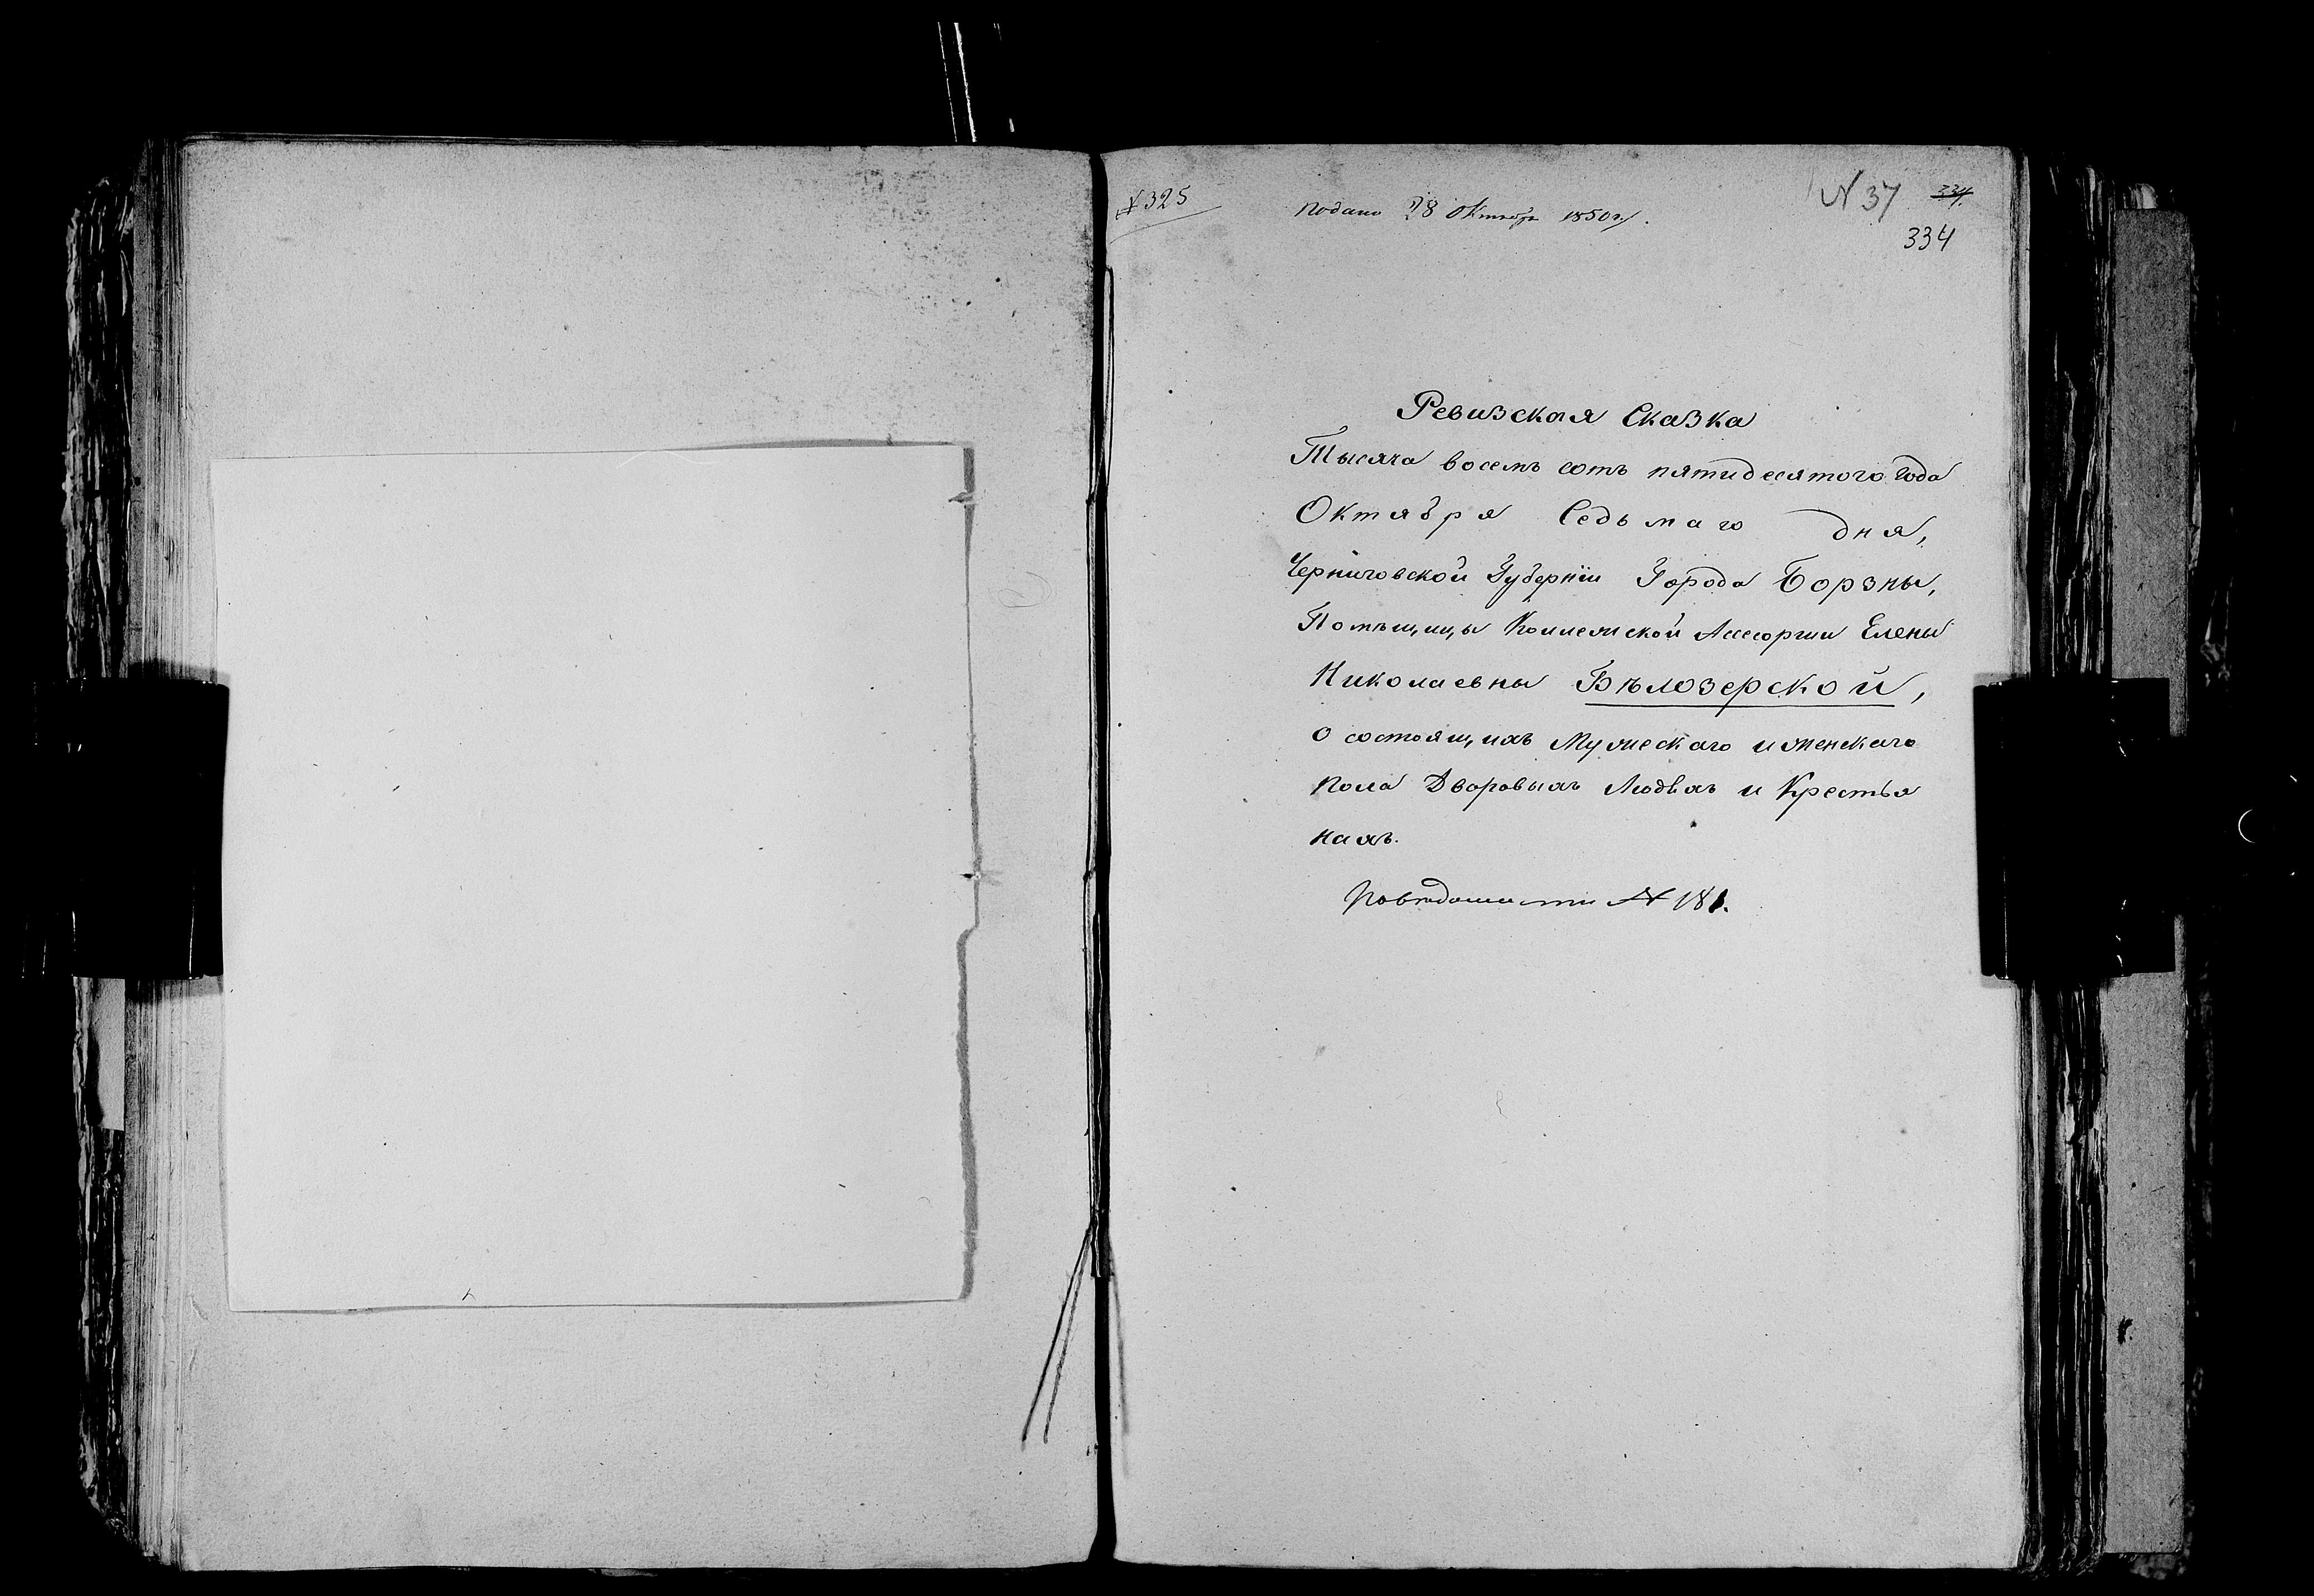 № 325
подана 28 Октября 1850 г.
№ 37
334
334
Ревизская Сказка
Тысяча восемь сотъ пятидесятого года
Октября Седьмаго дня,
Черниговской Губерніи Города Борзны,
Помѣщицы Коллежской Ассесорши Елены
Николаевны Бѣлозерской,
о состоящихъ Мужескаго и женскаго
пола Дворовыхъ Людѣхъ и Крестья
нахъ.
По вѣдомости № 181.